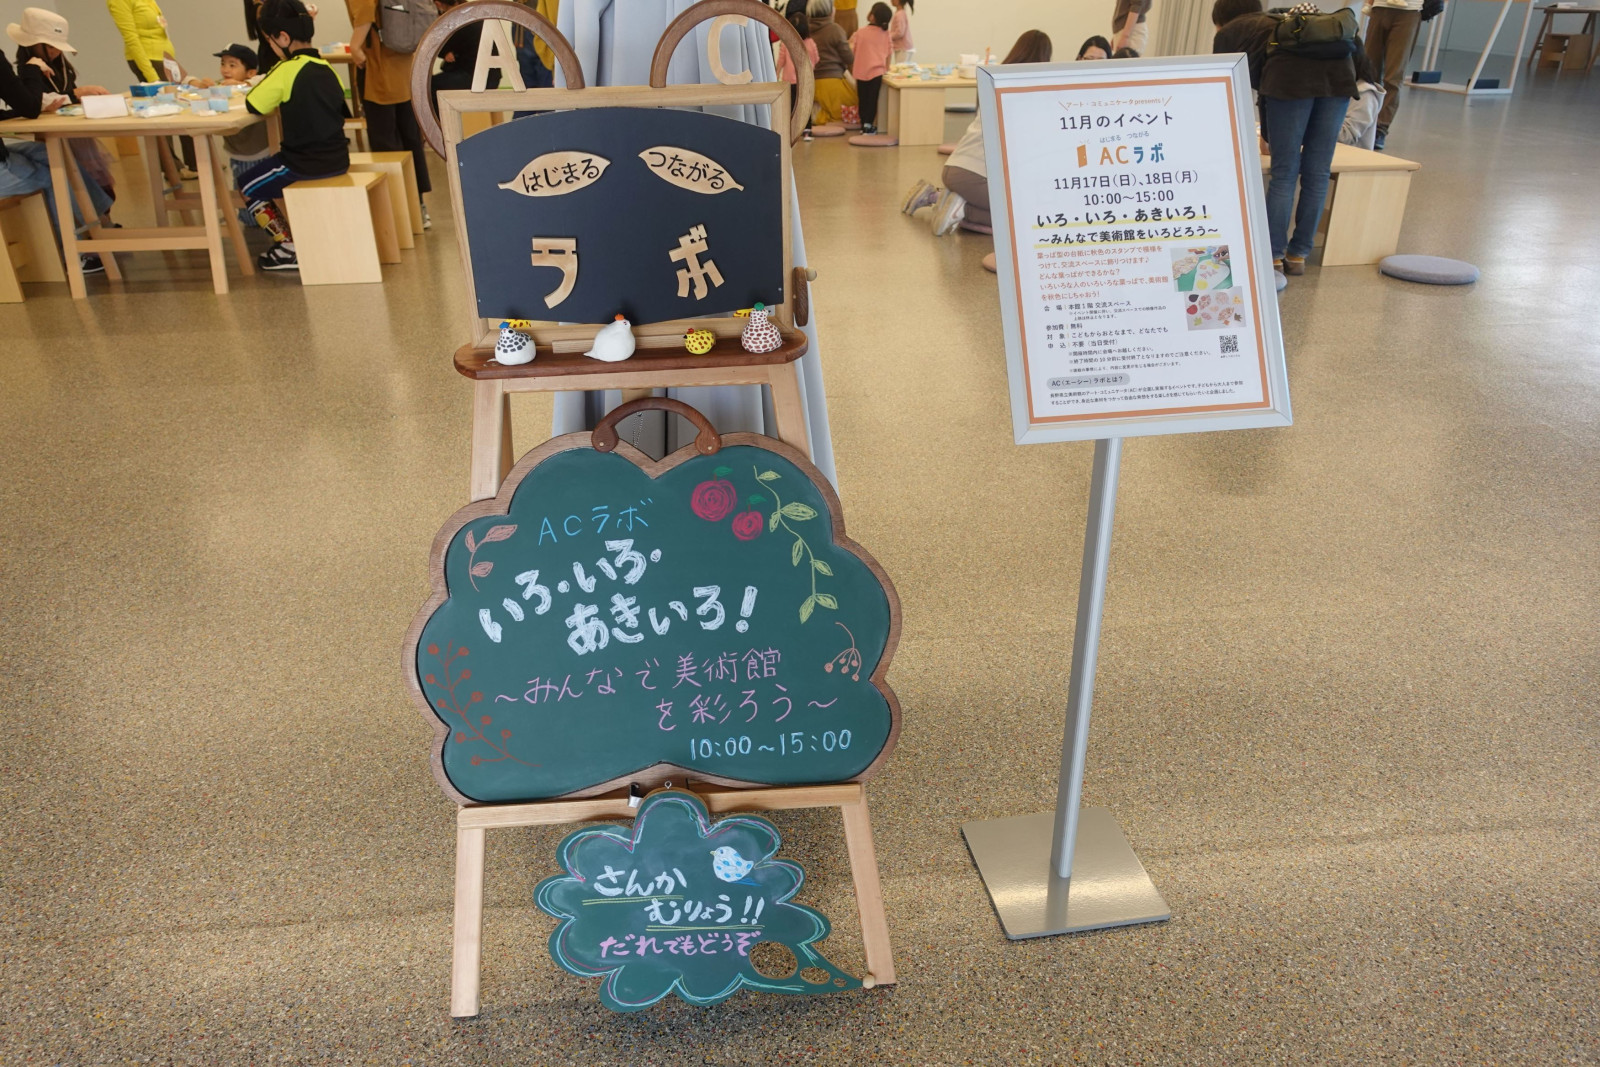 A C
はじまる つながる
ラボ
ACラボ
いろ・いろ・
あきいろ!
~みんなで美術館
を彩ろう~
10:00~15:00
さんか
むりょう!!
だれでもどうぞ
アート・コミュニケータpresents!
11月のイベント
はじまる つながる
ACラボ
11月17日(日)、18日(月)
10:00~15:00
いろ・いろ・あきいろ!
~みんなで美術館をいろどろう~
葉っぱ型の台紙に秋色のスタンプで模様を
つけて、交流スペースに飾りつけます♪
どんな葉っぱができるかな?
いろいろな人のいろいろな葉っぱで、美術館
を秋色にしちゃおう!
会 場:本館1階 交流スペース
参加費:無料
対 象:こどもからおとなまで、どなたでも
申 込:不要(当日受付)
※開催時間内に会場へお越しください。
※終了時間の10分前に受付終了となりますのでご注意ください。
AC(エーシー)ラボとは?